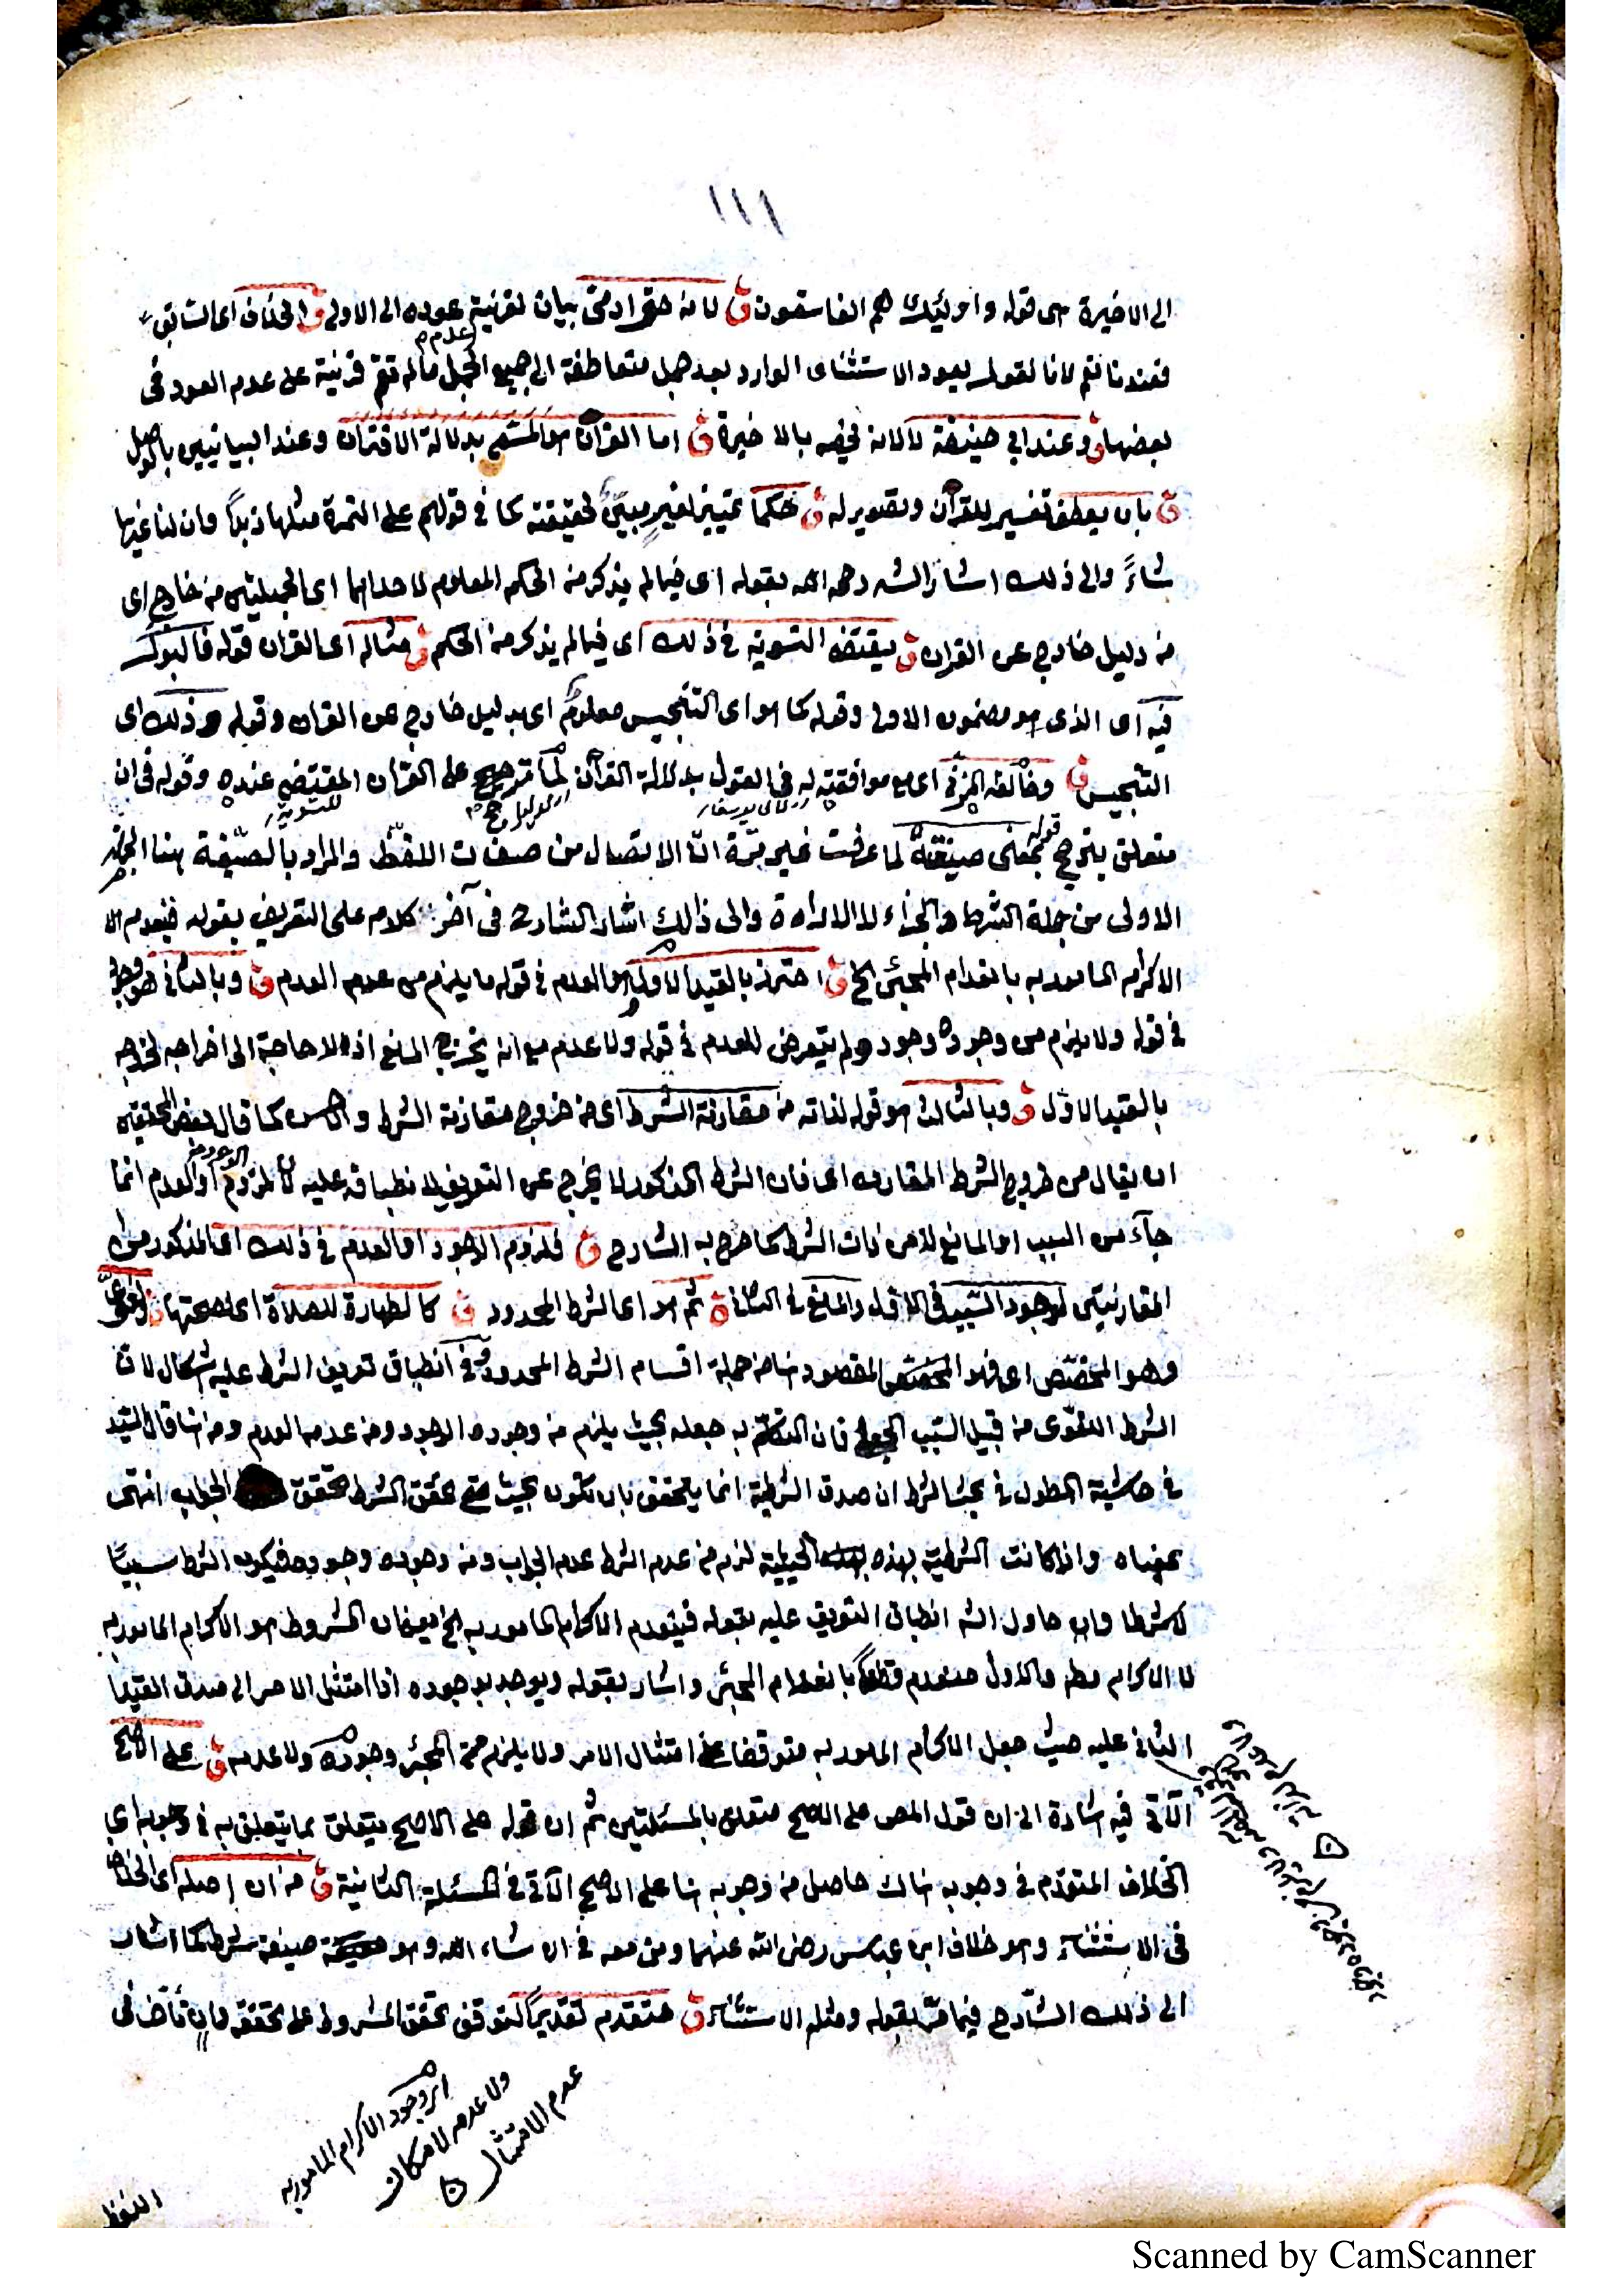 ١١١
الى الاخيرة هى قوله واولئك هم الفاسقون ق لانه حق ادمى بيان لقرنية عوده الى الاولى ق والخلاف اى السابق
فعندنا نعم لانا نقول بعود الاستثناء الوارد بعد جمل متعاطفة الى جميع الجمل مالم تقم قرنية على عدم العود فى
بعضها ق وعند ابي حنيفة لا لانه يخصه بالاخيرة ق اما القران هو المسمى بدلالة الاقتران وعند البيانيين بالوصل
ق بان يعطف تفسير للقرآن وتصوير له ق حكما تمييز لغير مبين لحقيقته كما في قولهم على التمرة مثلها زبدًا وان لنا غيرها
شاءً والى ذلك اشار الشه رحمه الله بقوله اى فيما لم يذكر من الحكم المعلوم لاحداهما اى الجملتين من خارج اى
من دليل خارج عن القران ق يقتضى التسوية فى ذلك اى فيما لم يذكر من الحكم ق مثاله اى القران قوله فالبول
فيه اى الذى هو مضمون الاولى وقوله كما هو اى التنجيس معلوم اى بدليل خارج عن القران وقوله وذلك اى
التنجيس ق وخالفه المزنى اى مع موافقته له فى القول بدلالة القرآن لما ترجح على القران المقتضى عنده وقوله فى ان
متعلق بترجح قوله بمعنى صيغته لما عرفت غير مرّة انّ الاتصال من صفات اللفظ والمراد بالصيغة هنا الجملة
الاولى من جملة الشرط والجزاء لا الاداة والى ذالك اشار الشارح فى آخر كلام على التعريف بقوله فينعدم الا
الاكرام المامور به بانعدام المجئ الخ ق احترز بالقيد الاول هو العدم فى قوله ما يلزم من عدمه العدم ق وبالثانى هو وجود
فى قوله ولا يلزم من وجوده وجود ولم يتعرض للعدم فى قوله ولا عدم مع انه يخرج المانع اذ لا حاجة الى اخراجه لخروجه
بالقيد الاوّل ق وبالثالث هو قوله لذاته من مقارنة الشرط اى من خروج مقارنة الشرط والاحسن كما قال بعض المحققين
ان يقال من خروج الشرط المقارن اى فان الشرط المذكور لا يخرج عن التعريف لانطباقه عليه لان لزوم الوجود او العدم انما
جآء من السبب او المانع لا من ذات الشرط كما صرح به الشارح ق فلزوم الوجود او العدم فى ذلك اى المذكور من
المقارنيتين لوجود السبب فى الاول والمانع فى الثانى ق ثم هو اى الشرط المحدود ق كالطهارة للصلاة اى لصحتها ق
وهو المخصّص اى فهو المخصّص المقصود هنا من جملة اقسام الشرط المحدود وفى انطباق تعريف الشرط عليه اشكال لان
الشرط اللغوى من قبيل السبب الجعلى فان المتكلم به جعله بحيث يلزم من وجوده الوجود ومن عدمه العدم ومن هنا قال السيد
فى حاشية المطول فى بحث الشرط ان صدق الشرطية انما يتحقق بان تكون بحيث متى تحقق الشرط تحقق الجواب انتهى
بمعناه واذا كانت الشرطية بهذه الحيثية لزم من عدم الشرط عدم الجواب ومن وجوده وجوده فيكون الشرط سببًا
لا شرطا وان حاول الشه انطباق التعريف عليه بقوله فينعدم الاكرام المامور به الخ يعنى ان المشروط هو الاكرام المامور به
لا الاكرام مط والاول منعدم قطعًا بانعدام المجئ واشار بقوله ويوجد بوجوده اذا امتثل الامر الى صدق القيد
الثانى عليه حيث جعل الاكرام المامور به متوقفا على امتثال الامر ولا يلزم من المجئ وجوده ولا عدمه ق على الاصح
الآتى فيه اشارة الى ان قول المص على الاصح متعلق بالمسئلتين ثم ان قوله على الاصح يتعلق بما يتعلق به فى وجوبه اى
الخلاف المتقدّم فى وجوبه هناك حاصل من وجوبه هنا على الاصح الآتى فى المسئلة الثانية ق من ان اصله اى الخلاف
فى الاستثناء وهو خلاف ابن عباس رضى الله عنهما ومن معه فى ان شاء الله وهو صيغة شرط كما اشار
الى ذلك الشارح فيما مرّ بقوله ومثله الاستثناء ق متقدم تقديرًا لتوقف تحقق المشروط على تحققه وان تأخر فى
اى وجود الاكرام المامور به
ولا عدمه لامكان
عدم الامتثال
اللفظ
Scanned by CamScanner